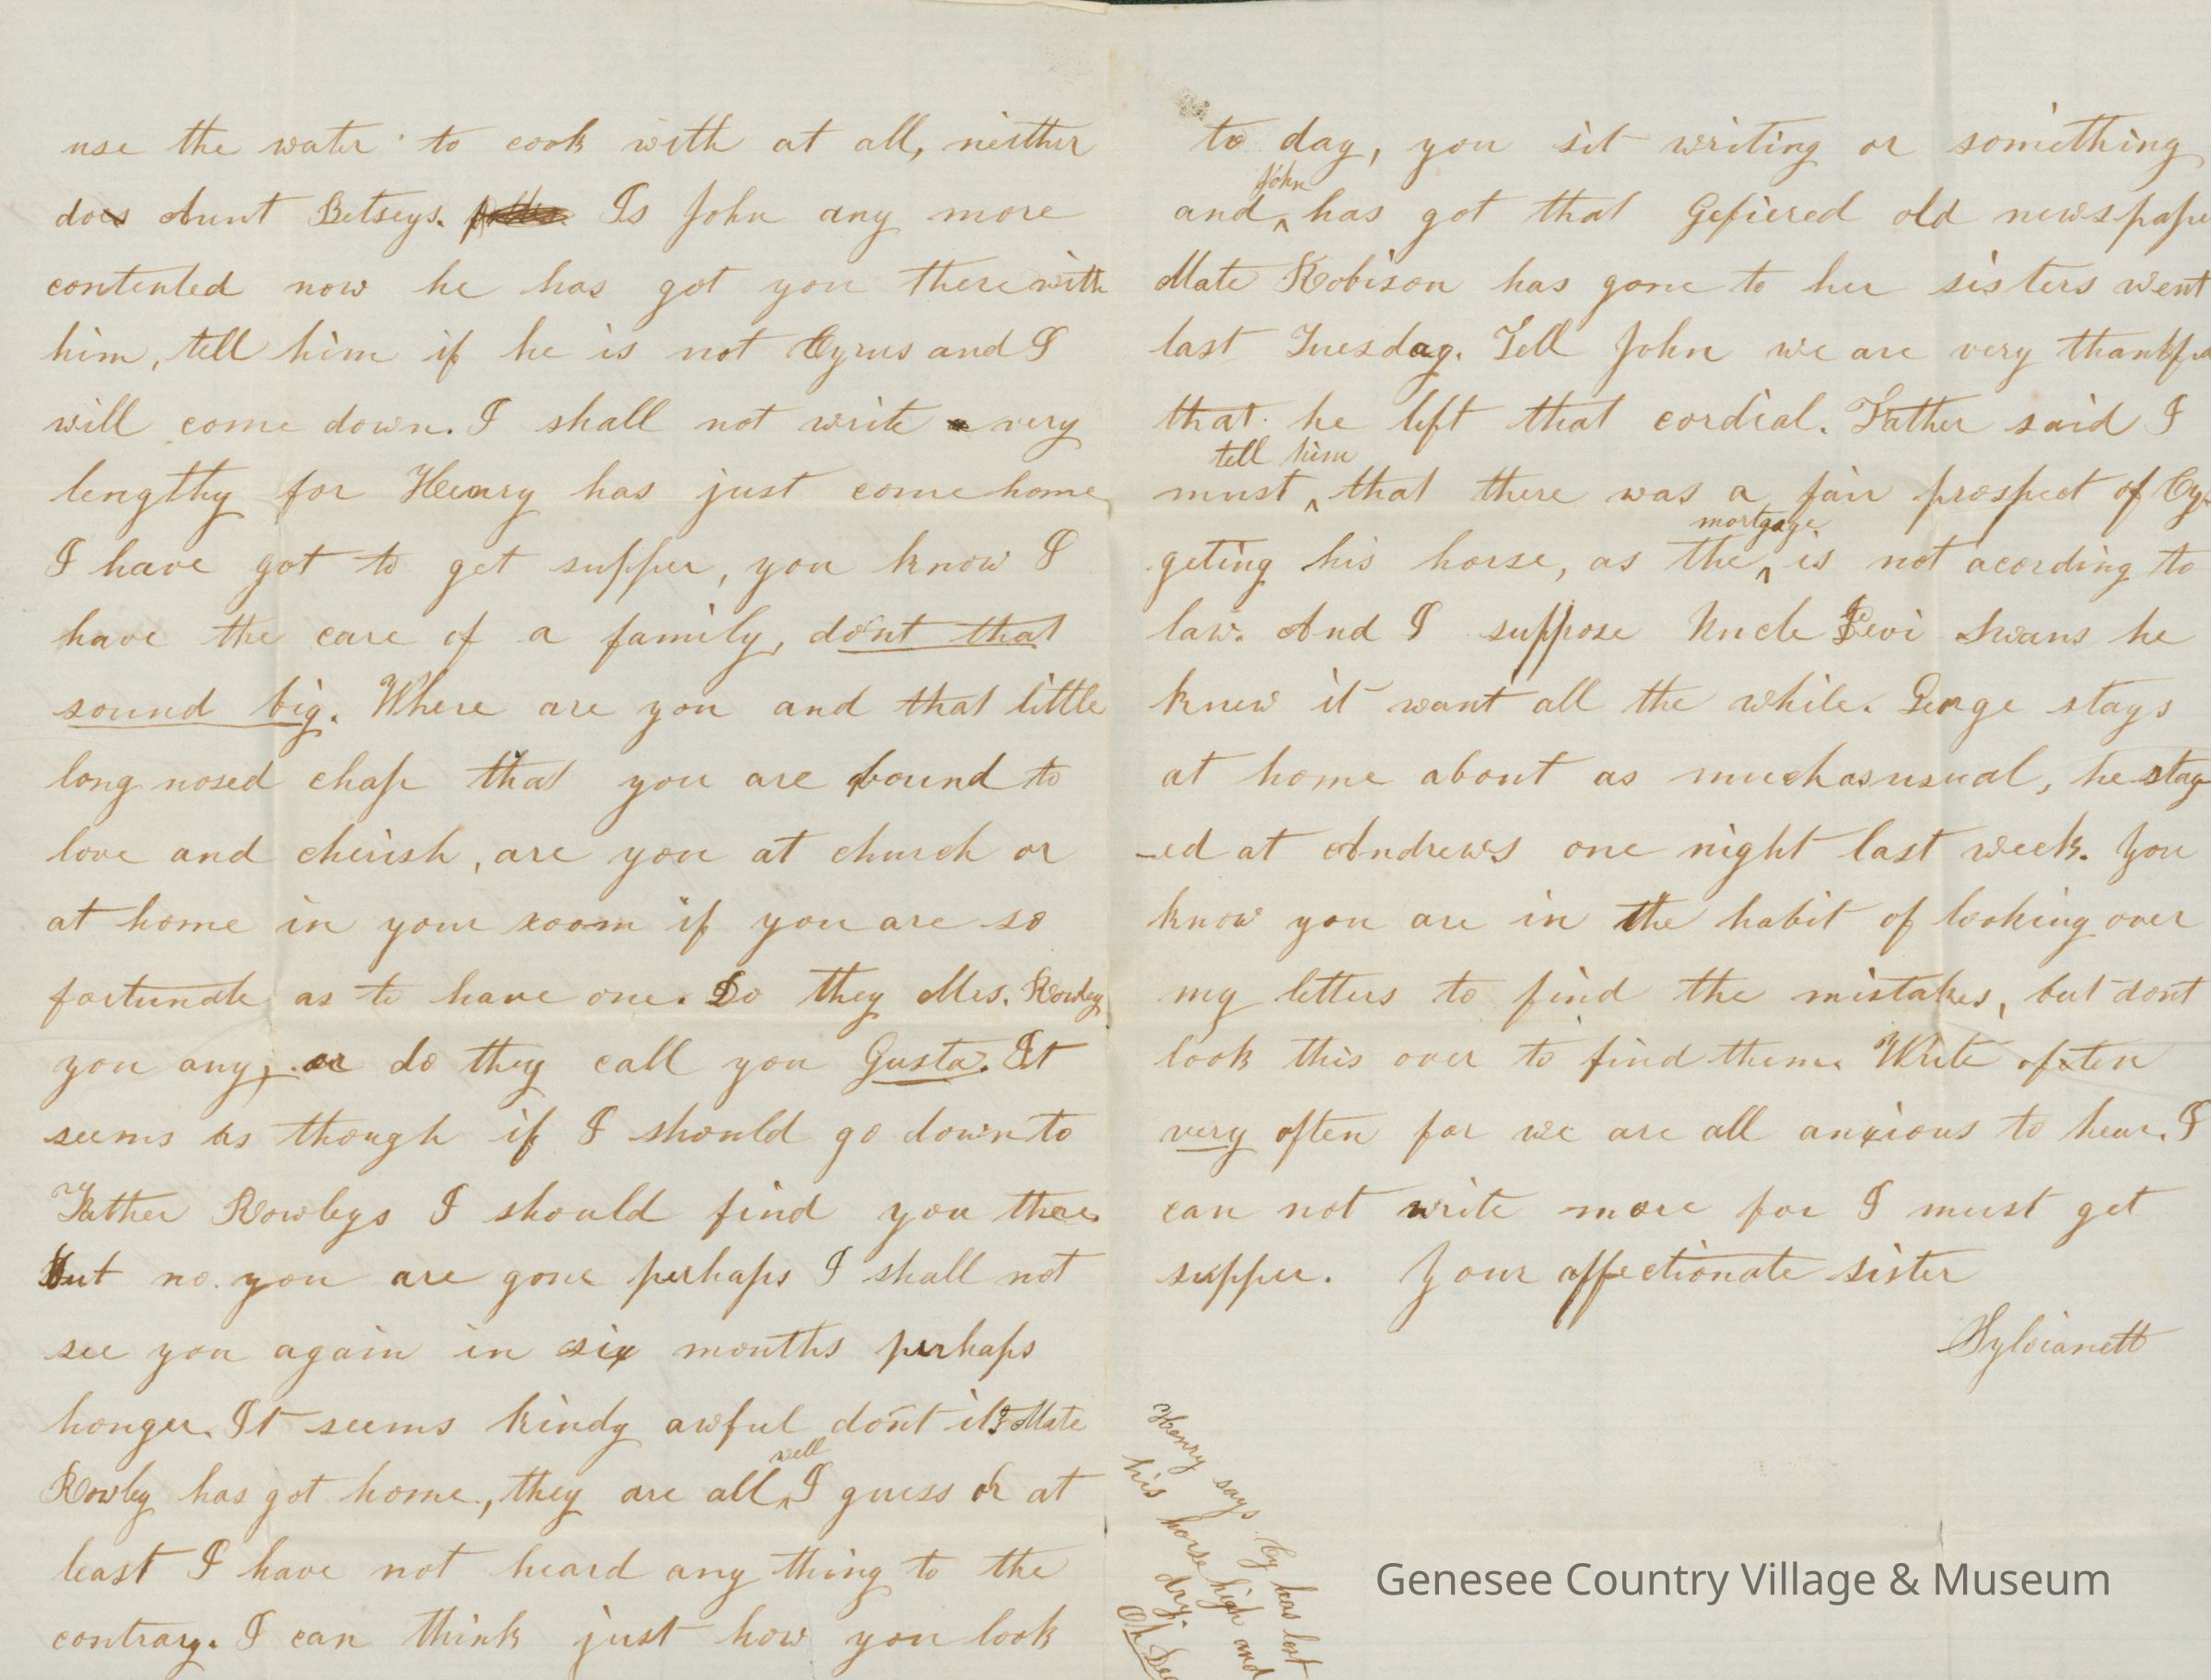 use the water to cook with at all, neither
does Aunt Betseys. Is John any more
contented now he has got you there with
him, tell him if he is not Cyrus and I
will come down. I shall not write very
lengthy for Henry has just come home
I have got to get supper, you know I
have the care of a family, dont that
sound big. Where are you and that little
long nosed chap that you are bound to
love and cherish, are you at church or
at home in your room if you are so
fortunate as to have one. Do they Mrs. Rowley
you any, or do they call you Gusta. It
seems as though if I should go down to
Father Rowleys I should find you there
But no you are gone perhaps I shall not
see you again in six months perhaps
longer. It seems kindy awful dont it? Mate
Rowley has got home, they are all well I guess or at
least I have not heard any thing to the
contrary. I can think just how you look
to day, you sit writing or something
and John has got that old newspape
Mate Robison has gone to her sisters went
last Tuesday. Tell John we are very thankfu
that he left that cordial. Father said I
must tell him that there was a fair prospect of Cy
geting his horse, as the mortgage is not acording to
law. And I suppose Uncle Levi Swans he
knew it want all the while. George stays
at home about as much as usual, he stay
-ed at Andrews one night last week. You
know you are in the habit of looking over
my letters to find the mistakes, but dont
look this over to find them. Write often
very often for we are all anxious to hear. I
can not write more for I must get
supper. Your affectionate sister
Sylvianett
Henry says Cy has lost
his horse high and
dry.
Oh
Genesee Country Village & Museum